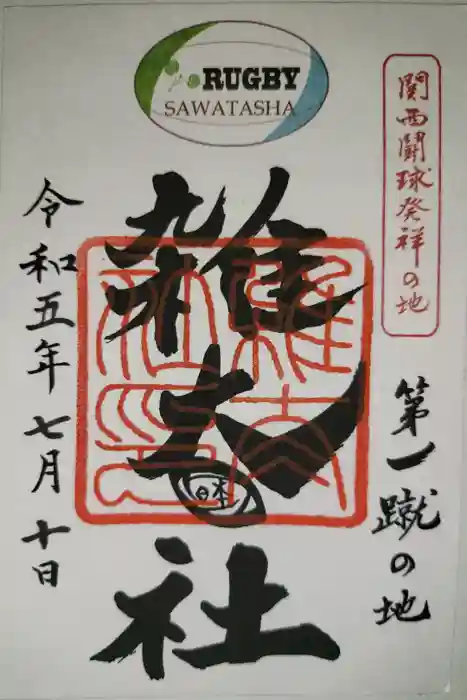 RUGBY
SAWATASHA
関西闘球発祥の地
第一蹴の地
雑太社
日本
雑太社印
令和五年七月十日